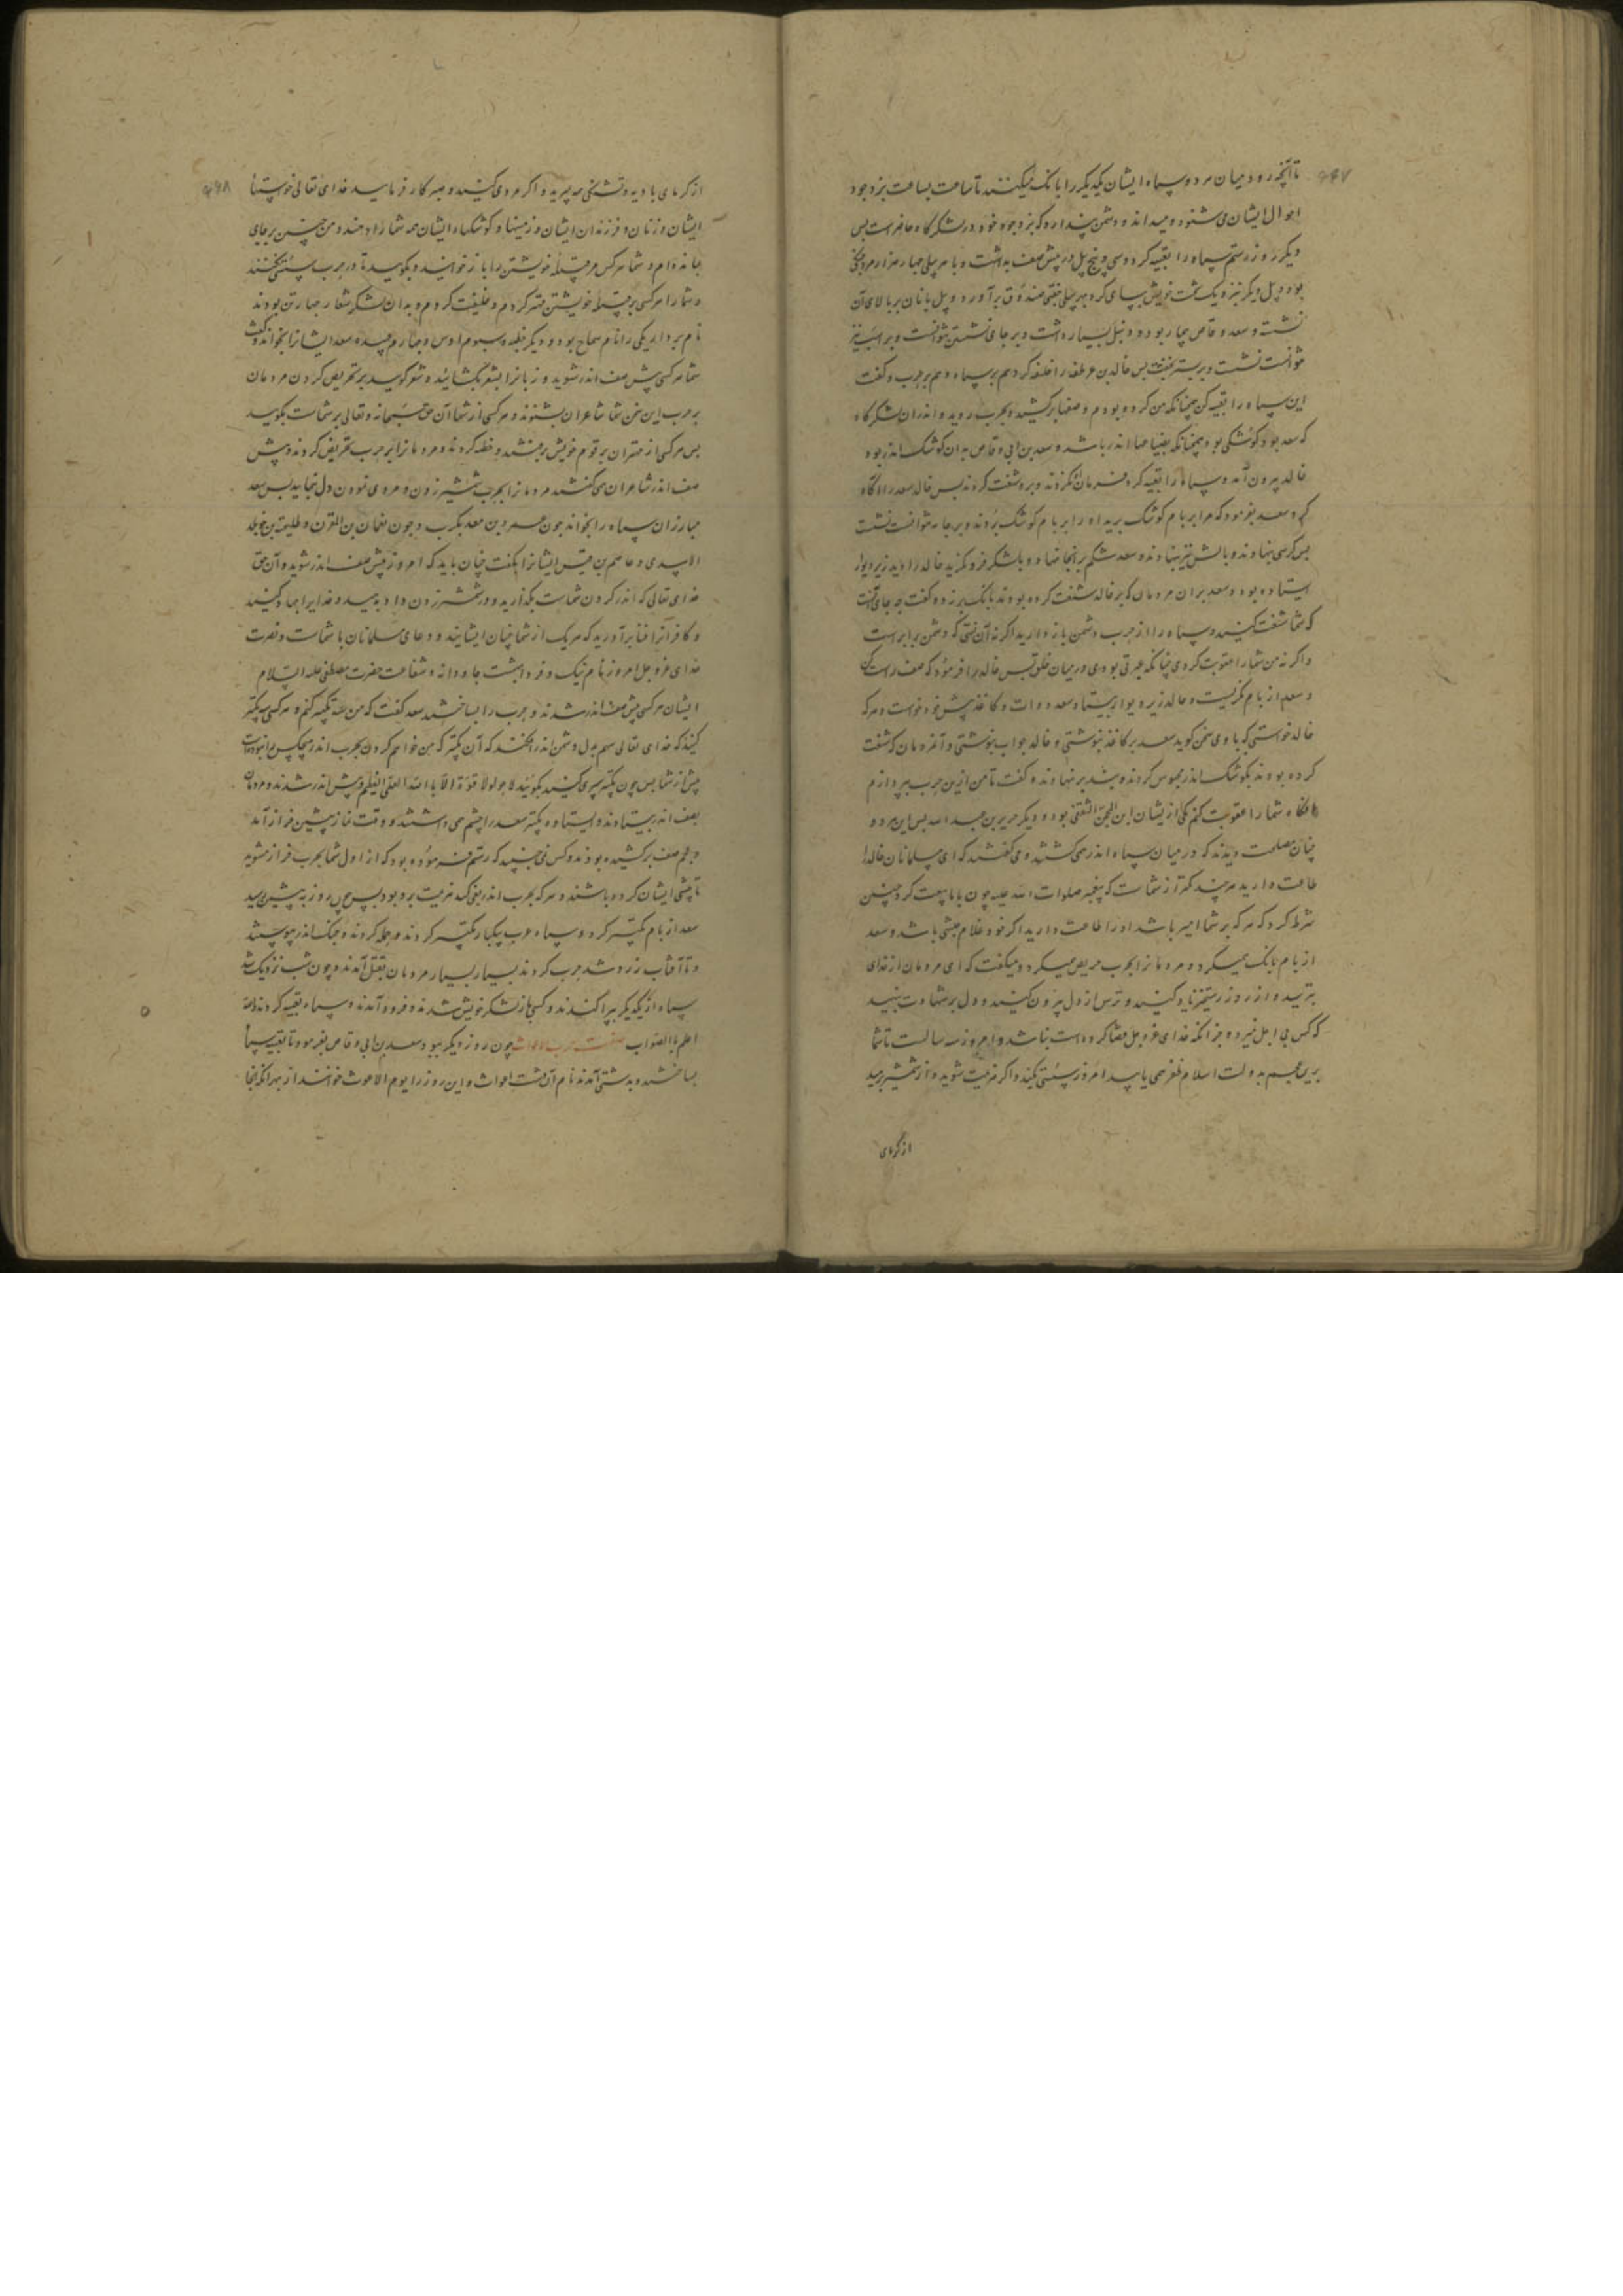 تا آنچه رود میان هر دو سپاه ایشان یکدیگر را بانک میکنند تا ساعت بساعت یزدجرد
احوال ایشان می شنود و میداند و دشمن پندارد که یزدجرد خود در لشکرگاه حاضر است پس
دیگر روز رستم سپاه را تعبیه کرد و سی و پنج پیل در پیش صف بداشت و با هر پیلی چهار هزار مرد جنگی
بود و پیل دیگر نیز و یک تخت خویش بپای کرد بهر پیلی صندوق برآورد و پیل بانان بر بالای آن
نشست و سعد وقاص بیمار بود و دنبل بسیار داشت و بر جای نشستن نتوانست و بر اسب نیز
نتوانست نشست و بر بستر بخفت پس خالد بن عرطفه را خلیفه کرد هم بر سپاه و هم بر حرب و گفت
این سپاه را تعبیه کن چنانکه من کرده بودم و صفها برکشید و بحرب روید و اندران لشکرگاه
که سعد بود کوشکی بود چنانکه بضیاعها اندر باشد و سعد بن ابی وقاص بدان کوشک اندر بود
خالد بیرون آمد و سپاه را تعبیه کرد فرمان نکردند و برو شغب کردند پس خالد سعد را آگاه
کرد سعد بفرمود که مرا بر بام کوشک برید او را بر بام کوشک بردند و بر جامه نتوانست نشست
پس کرسی بنهادند و بالش نیز بنهادند و سعد شکم بر آنجا نهاد و بلشکر فرو نگرید خالد را دید زیر دیوار
ایستاده بود و سعد بران مردمان که بر خالد شغب کرده بودند بانک برزد و گفت چه جای آنست
که شما شغب کنید و سپاه را از حرب دشمن باز دارید اگر نه آن نستی که دشمن برابر است
و اگر نه من شما را عقوبت کردمی چنانکه عبرتی بودی در میان خلق پس خالد را فرمود که صف راست کن
و سعد از بام نگریست و خالد زیر دیوار بیستاد و سعد دوات و کاغذ پیش خود خواست و هرکه
خالد خواستی که با وی سخن گوید سعد بر کاغذ بنوشتی و خالد جواب بنوشتی و آنمردمان که شغب
کرده بودند بکوشک اندر محبوس کردند و بند بر نهادند و گفت تا من ازین حرب بپردازم
آنگاه شما را عقوبت کنم یکی از ایشان ابن المحجن الثقفی بود و دیگر جریر بن عبدالله پس این هر دو
چنان مصلحت دیدند که در میان سپاه اندر همی گشتند و می گفتند که ای مسلمانان خالد را
طاعت دارید هرچند کمتر از شماست که پیغمبر صلوات الله علیه چون با ما بیعت کرد چنین
شرط کرد که هرکه بر شما امیر باشد او را طاعت دارید اگر خود غلام حبشی باشد و سعد
از بام بانک همیکرد و مردمانرا بحرب حریص میکرد و میگفت که ای مردمان از خدای
بترسید و از روز رستخیز یاد کنید و ترس از دل بیرون کنید و دل بر شهادت بنهید
که کس بی اجل نمیرد و جز آنکه خدای عزوجل قضا کرده است نباشد و امروز سه سالست تا شما
برین عجم بدولت اسلام ظفر همی یابید امروز سستی نکنید و اگر هزیمت شوید و از شمشیر برهید
از گرمای
از گرمای بادیه و تشنگی بمیرید و اگر مردی کنید و صبر کار فرمایید خدای تعالی خواستها
ایشان و زنان و فرزندان ایشان و زمینها و کوشکهاء ایشان همه شما را دهد و من چنین بر جای
بمانده ام و شما هرکس مر قبیله خویشتن را باز خوانید و بگویید تا در حرب سستی نکنند
و شما را هرکسی بر قبیله خویشتن مهتر کردم و خلیفت کردم و بدان لشکر شعار چهار تن بودند
نام بردار یکی را نام شماخ بود و دیگر حطیه و سیوم اوس و چهارم عبده سعد ایشانرا بخواند و گفت
شما هرکسی پیش صف اندر شوید و زبانرا بشعر بگشائید و شعر گویید بر تحریض کردن مردمان
بر حرب این سخن شما شاعران بشنوند و هرکسی از شما آن حق سبحانه و تعالی بر شماست بگویید
پس هرکسی از مهتران بر قوم خویش برخستند و خطبه کردند و مردمانرا بر حرب تحریض کردند و پیش
صف اندر شاعران همی گفتند مردمانرا بحرب شمشیر زدن و مردی نمودن دل بجایید پس سعد
مبارزان سپاه را بخواند چون عمرو بن معدیکرب و چون نعمان بن القرن و طلیحة بن خویلد
الاسدی و عاصم بن قیس ایشانرا بگفت چنان باید که امروز پیش صف اندر شوید و آن حق
خدای تعالی که اندر گردن شماست بگذارید و در شمشیر زدن داد بدهید و خدایرا جهاد کنید
و کافرانرا فنا برآورید که هر یک از شما چنان ایشانید و دعای مسلمانان با شماست و نصرت
خدای عزوجل امروز نام نیک و فردا بهشت جاودانه و شفاعت حضرت مصطفی علیه السلام
ایشان هرکسی پیش صف اندر شدند و حرب را بساختند سعد گفت که من سه تکبیر کنم و هرکسی سه تکبیر
کنید که خدای تعالی سهم بدل دشمن اندر افکند که آن تکبیر که من خواهم کردن بحرب اندر هیچکس را نبوده است
پیش از شما پس چون تکبیر سپری کنید بگوئید لا حول ولا قوة الا بالله العلی العظیم و پیش اندر شدند و مردمان
بصف اندر بیستادند و ایستاده تکبیر سعد را چشم می داشتند و وقت نماز پیشین فراز آمد
و عجم صف برکشیده بودند و کس نمی جنبید که رستم فرموده بود که از اول شما بحرب فراز مشوید
تا پیشی ایشان کرده باشند و هرکه بحرب اندر بغی کند هزیمت برو بود پس چون روز به پیشین رسید
سعد از بام تکبیر کرد و سپاه عرب بیکبار تکبیر کردند و حمله کردند و جنگ اندر پیوستند
و تا آفتاب زرد شد حرب کردند بسیار بسیار مردمان بقتل آمدند و چون شب نزدیک شد
سپاه از یکدیگر بپراکندند و کسی باز لشکر خویش شدند و فرود آمدند و سپاه تعبیه کردند والله
اعلم بالصواب صفت حرب الاغواث چون روز دیگر ببود سعد بن ابی وقاص بفرمود تا تعبیه سپاه
بساختند و بدشتی آمدند نام آن دشت اغواث و این روز را یوم الاغواث خوانند از بهر آنکه آنجا